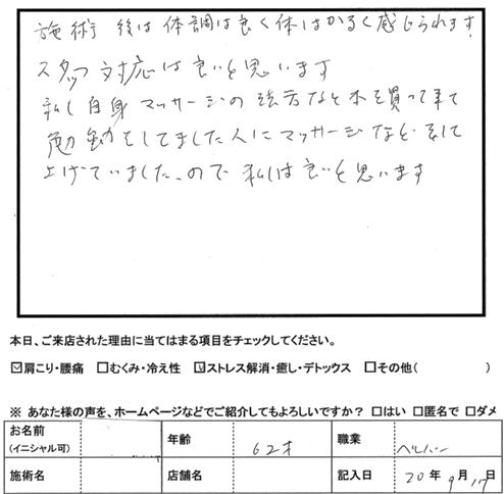 施術 後は 体調は良く体はかるく感じられます
スタッフ 対応は良いと思います
私し自身 マッサージの 法方など本を買って来て
勉勤をしてました人にマッサージなどをして
上げていました、ので 私しは良いと思います
本日、ご来店された理由に当てはまる項目をチェックしてください。
☑肩こり・腰痛 □むくみ・冷え性 ☑ストレス解消・癒し・デトックス □その他( )
※ あなた様の声を、ホームページなどでご紹介してもよろしいですか？ □はい □匿名で □ダメ
お名前 (イニシャル可) 年齢 62才 職業
施術名 店舗名 記入日 20年 9月17日